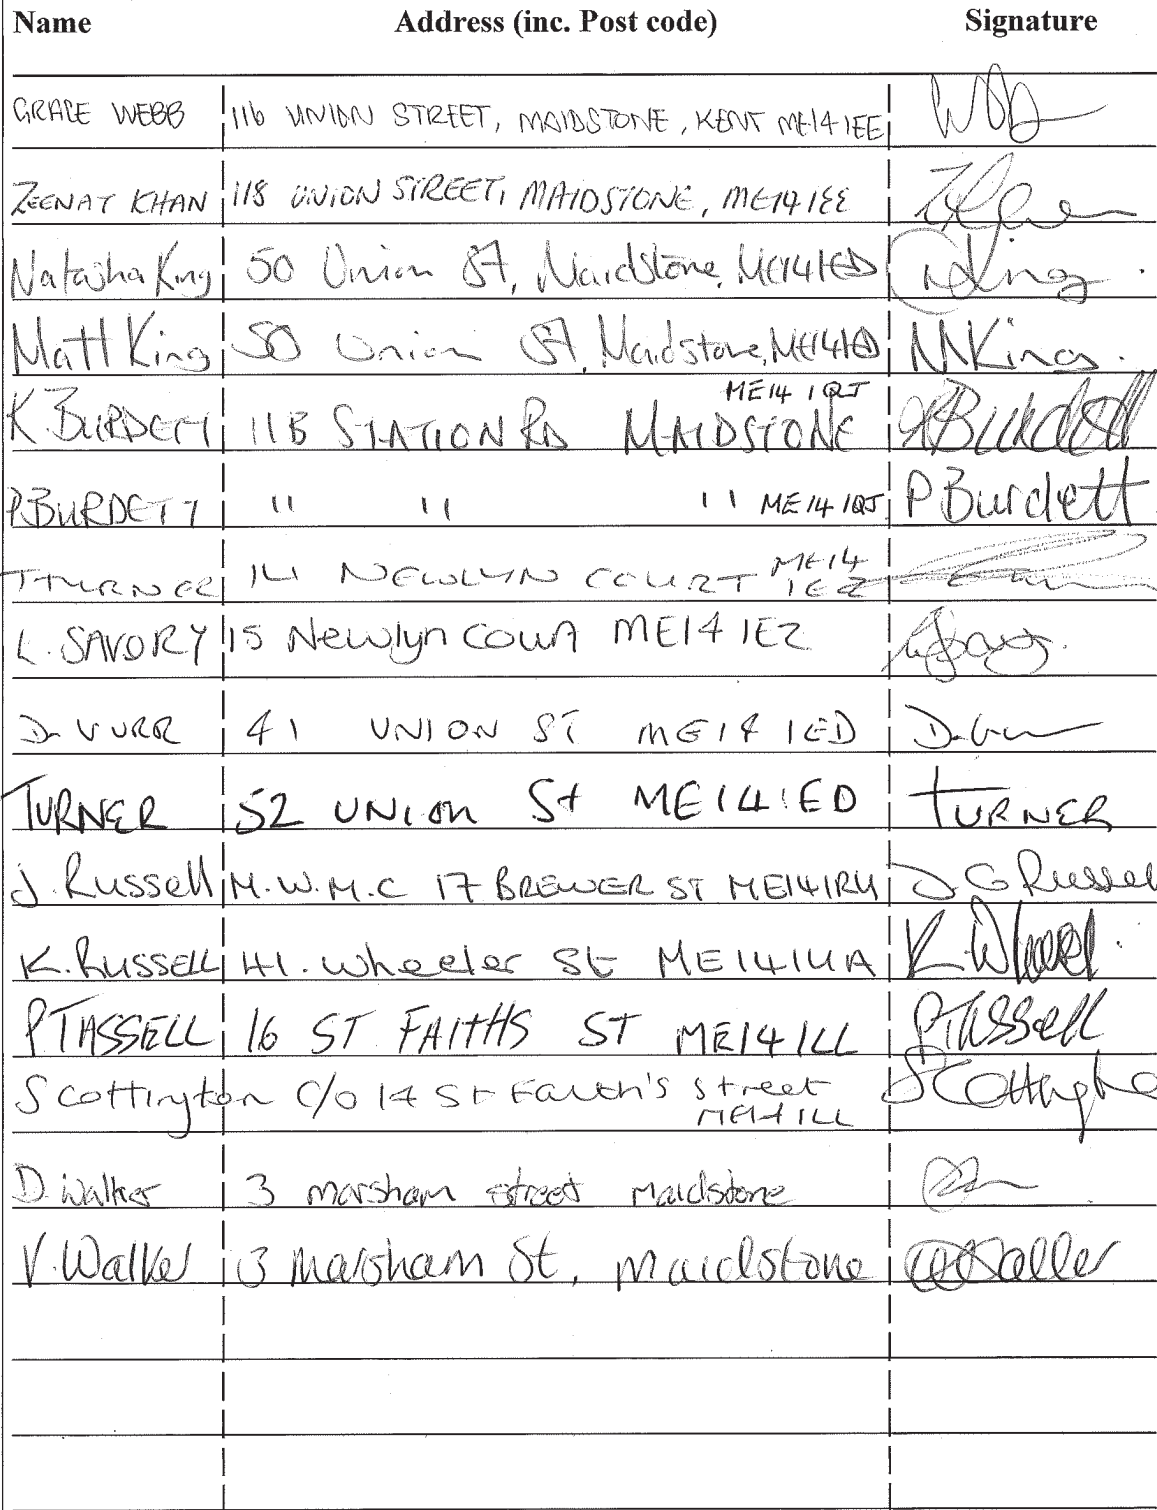 Name Address (inc. Post code) Signature
GRACE WEBB 116 UNION STREET, MAIDSTONE, KENT ME14 1EE
ZEENAT KHAN 118 UNION STREET, MAIDSTONE, ME14 1EE
Natasha King 50 Union St, Maidstone, ME14 1ED NKing
Matt King 50 Union St, Maidstone, ME14 1ED MKing.
ME14 1QJ
K. BURDETT 11B STATION RD MAIDSTONE KBurdett
P. BURDETT " " " ME14 1QJ P Burdett
T TURNER 14 NEWLYN COURT ME14
1EZ
L. SAVORY 15 Newlyn Court ME14 1EZ
D. VURR 41 UNION ST ME14 1ED
TURNER 52 UNION St ME14 1ED TURNER
J. Russell M.W.M.C 17 BREWER ST ME14 1RU J G Russell
K. RUSSELL 41. Wheeler St ME14 1UA
P TASSELL 16 ST FAITHS ST ME14 1LL P Tassell
S Cottington C/O 14 St Faith's Street S Cottington
ME14 1LL
D. Walker 3 marsham street Maidstone
V. Walker 3 Marsham St, Maidstone